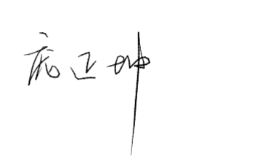 庞正坤